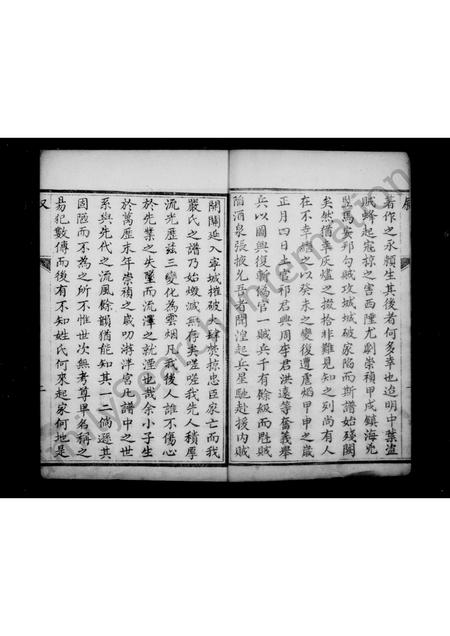 著作之永賴生其後者何多幸也迨明中葉盜
賊蜂起寇掠之害西陲尤劇崇禎甲戌鎮海兇
監馬安邦句賊攻城城破家陷而斯譜始殘闕
矣然猶幸灰燼之掇拾非難見知之列尚有人
在不幸繼之以癸未之變復遭虜焰甲申之歲
正月四日土官祁君興周李君洪遠等奮義舉
兵以圖興復斬偽官一賊兵千有餘級而甦賊
陷酒泉張掖允吾者聞湟起兵星馳赴援內賊
開關延入寧城摧破大肆焚掠忠臣家亡而我
嚴氏之譜乃始燬滅無存矣嗟嗟我先人積厚
流光歷茲三變化為雲烟凡我後人誰不傷心
於先業之失墜而流澤之就湮也哉余小子生
於萬歷末年崇禎之歲叨游泮宮凡譜中之世
系與先代之流風餘韻猶能知其一二倘遜其
因陋而不為之所不惟世次無考尊甲名稱之
易犯數傳而後有不知姓氏何來起家何地是